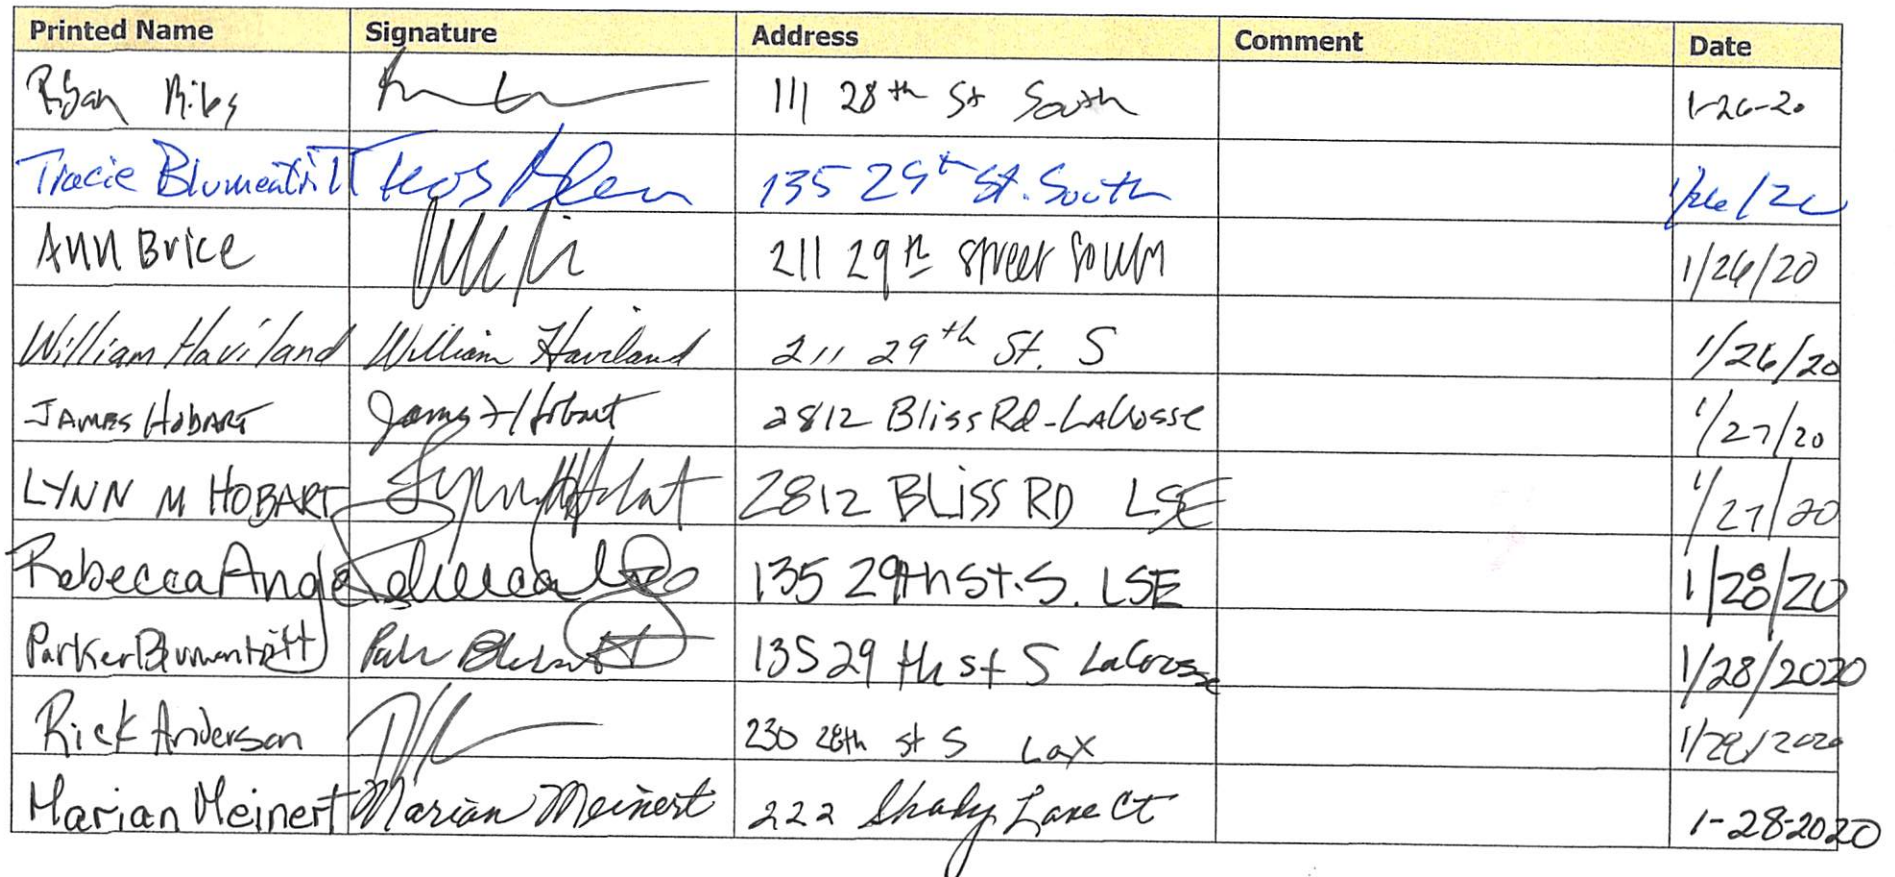 Printed Name Signature Address Comment Date
Ryan 111 28th St South 1-26-20
Tracie Blumentritt 135 29th St. South 1/26/20
Ann Brice 211 29th Street South 1/26/20
William Haviland William Haviland 211 29th St. S 1/26/20
James Hobart James Hobart 2812 Bliss Rd - LaCrosse 1/27/20
LYNN M HOBART Lynn M Hobart 2812 BLISS RD LSE 1/27/20
Rebecca Angelo Rebecca Angelo 135 29th St. S. LSE 1/28/20
Parker Blumentritt 135 29th St S LaCrosse 1/28/2020
Rick Anderson 230 28th St S LaX 1/28/2020
Marian Meinert Marian Meinert 222 Shady Lane Ct 1-28-2020